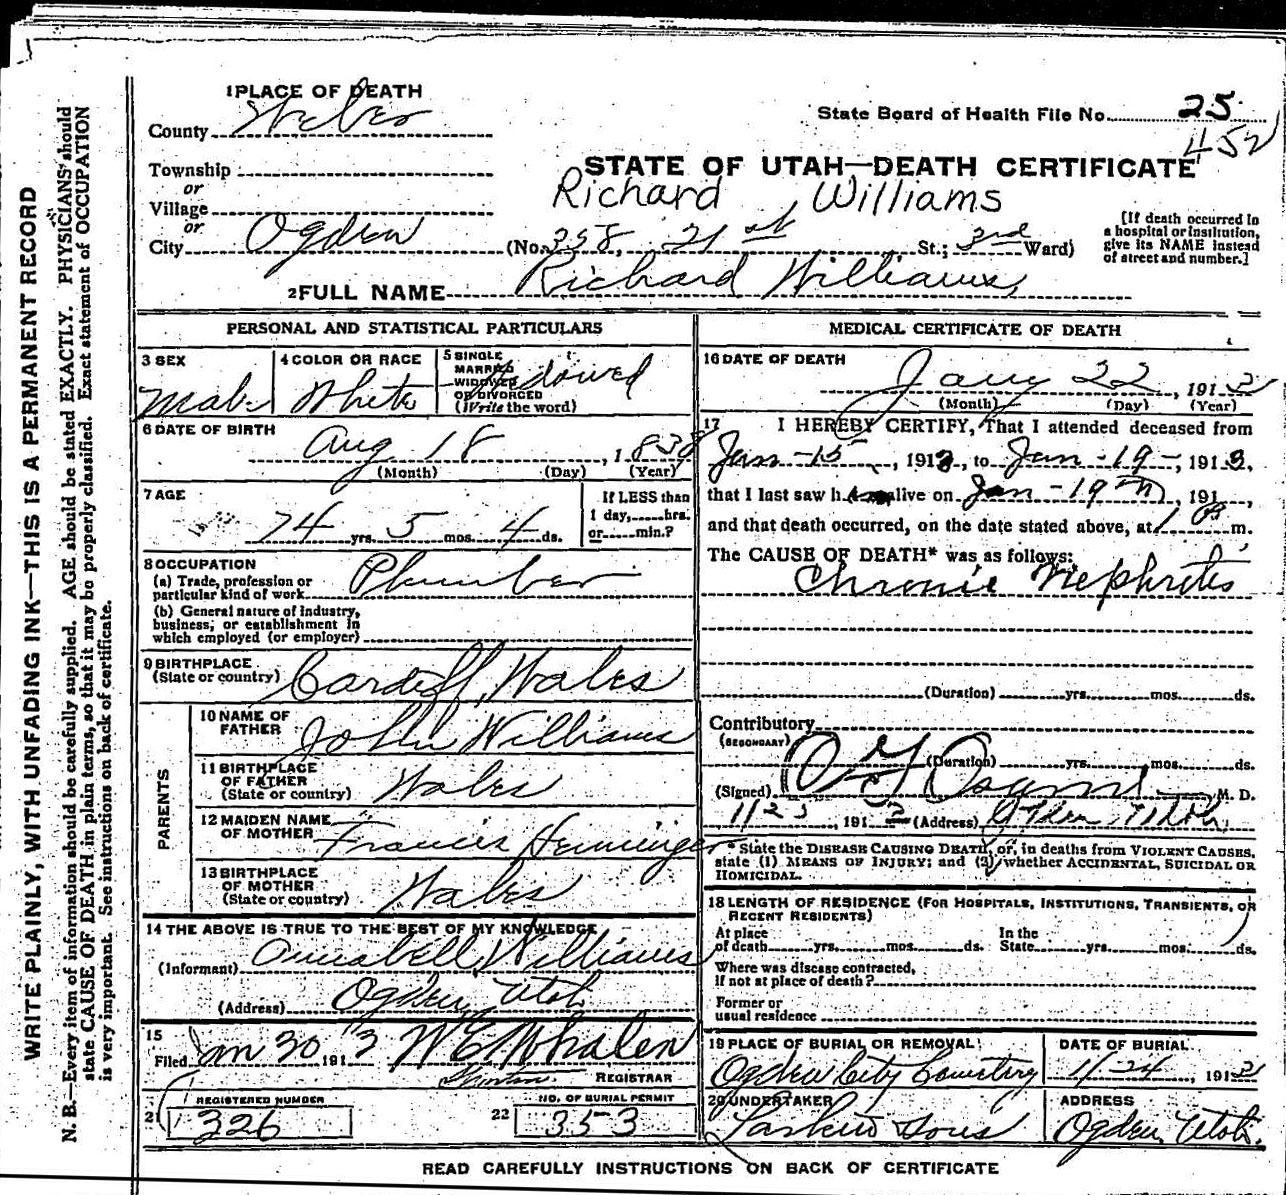 1 PLACE OF DEATH
County Weber
State Board of Health File No. 25
452
Township
or
Village
or
City Ogden
STATE OF UTAH—DEATH CERTIFICATE
Richard Williams
(No. 358, 21st St.; 3rd Ward)
[If death occurred in a hospital or institution, give its NAME instead of street and number.]
2 FULL NAME Richard Williams
PERSONAL AND STATISTICAL PARTICULARS
3 SEX
Male
4 COLOR OR RACE
White
5 SINGLE
MARRIED
WIDOWED
OR DIVORCED
(Write the word)
Widowed
6 DATE OF BIRTH
Aug 18, 1838
(Month) (Day) (Year)
7 AGE
74 yrs. 5 mos. 4 ds.
If LESS than
1 day,......hrs.
or......min.?
8 OCCUPATION
(a) Trade, profession or
particular kind of work Plumber
(b) General nature of industry,
business, or establishment in
which employed (or employer)
9 BIRTHPLACE
(State or country) Cardiff, Wales
PARENTS
10 NAME OF
FATHER John Williams
11 BIRTHPLACE
OF FATHER
(State or country) Wales
12 MAIDEN NAME
OF MOTHER Francis Heminger
13 BIRTHPLACE
OF MOTHER
(State or country) Wales
14 THE ABOVE IS TRUE TO THE BEST OF MY KNOWLEDGE
(Informant) Annabell Williams
(Address) Ogden, Utah
15
Filed Jan 30 1913 W E Whalen
REGISTRAR
21 REGISTERED NUMBER
326
22 NO. OF BURIAL PERMIT
353
MEDICAL CERTIFICATE OF DEATH
16 DATE OF DEATH
Jany 22, 1913
(Month) (Day) (Year)
17 I HEREBY CERTIFY, That I attended deceased from
Jan - 15, 1913, to Jan - 19 -, 1913,
that I last saw h alive on Jan - 19th, 191
and that death occurred, on the date stated above, at m.
The CAUSE OF DEATH* was as follows:
Chronic Nephritis
(Duration) yrs. mos. ds.
Contributory
(SECONDARY)
(Duration) yrs. mos. ds.
(Signed) M. D.
1/23, 191 (Address) Ogden, Utah
* State the DISEASE CAUSING DEATH, or, in deaths from VIOLENT CAUSES,
state (1) MEANS OF INJURY; and (2) whether ACCIDENTAL, SUICIDAL OR
HOMICIDAL.
18 LENGTH OF RESIDENCE (FOR HOSPITALS, INSTITUTIONS, TRANSIENTS, OR
RECENT RESIDENTS)
At place
of death yrs. mos. ds.
In the
State yrs. mos. ds.
Where was disease contracted,
if not at place of death?
Former or
usual residence
19 PLACE OF BURIAL OR REMOVAL
Ogden City Cemetery
DATE OF BURIAL
1/24, 191
20 UNDERTAKER
Larkin Sons
ADDRESS
Ogden, Utah.
READ CAREFULLY INSTRUCTIONS ON BACK OF CERTIFICATE
WRITE PLAINLY, WITH UNFADING INK—THIS IS A PERMANENT RECORD
N. B.—Every item of information should be carefully supplied. AGE should be stated EXACTLY. PHYSICIANS should
state CAUSE OF DEATH in plain terms, so that it may be properly classified. Exact statement of OCCUPATION
is very important. See instructions on back of certificate.